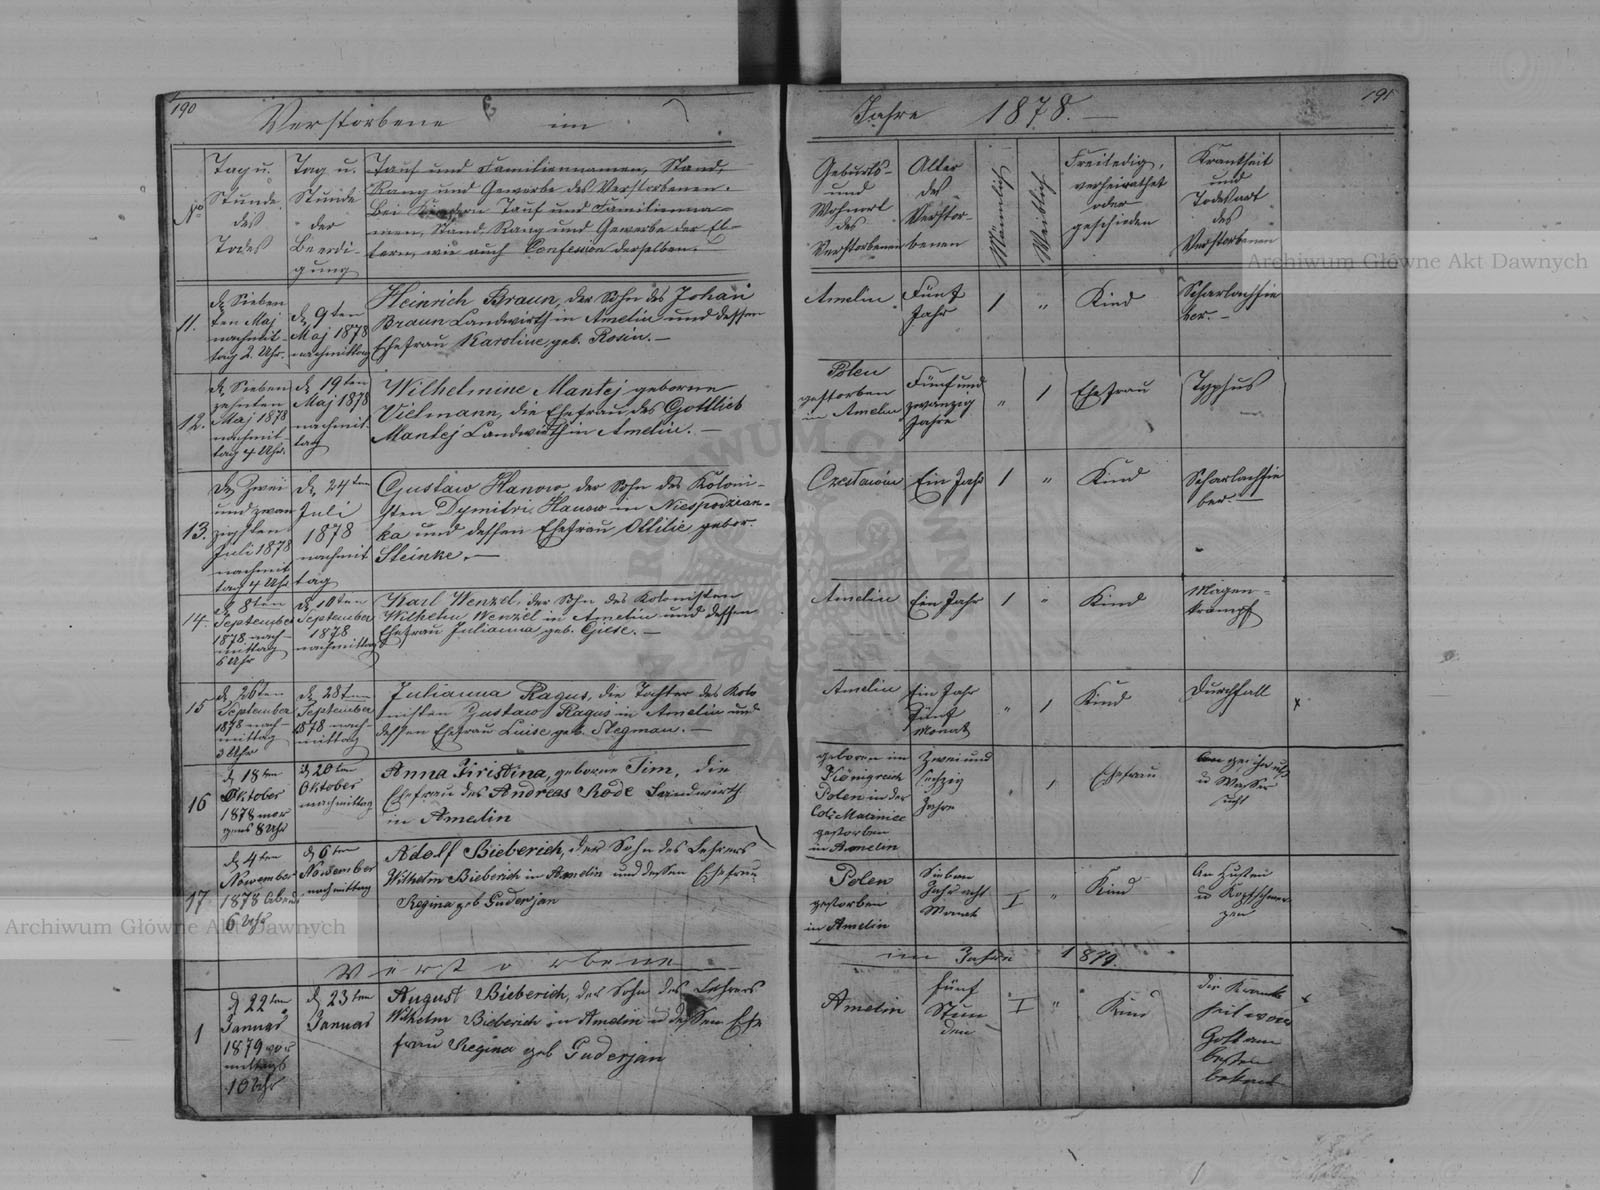 190
Verstorbene im
Jahre 1878.
191
No
Tag u.
Stunde
des
Todes
Tag u.
Stunde
der
Beerdi-
gung
Tauf und Familiennamen, Stand,
Rang und Gewerbe des Verstorbenen.
Bei Kindern Tauf und Familienna-
men, Stand Rang und Gewerbe der El-
tern, wie auch Confession derselben.
Geburts-
und
Wohnort
des
Verstorbenen
Alter
des
Verstor-
benen
Männlich
Weiblich
Freiledig,
verheirathet
oder
geschieden
Krankheit
und
Todesart
des
Verstorbenen
11.
d. Sieben
ten Maj
nachmit-
tag 2. Uhr.
d. 9ten
Maj 1878
nachmittag
Heinrich Braun, der Sohn des Johan
Braun Landwirth in Amelin und dessen
Ehefrau Karoline geb. Rosin. —
Amelin
Fünf
Jahr
1
"
Kind
Scharlachfie
ber. —
12.
d. Sieben
zehnten
Maj 1878
nachmit-
tag 4 Uhr.
d. 19ten
Maj 1878
nachmit-
tag
Wilhelmine Mantej geborne
Vielmann, die Ehefrau des Gottlieb
Mantej Landwirth in Amelin. —
Polen
gestorben
in Amelin
Fünf und
zwanzig
Jahre
"
1
Ehefrau
Typhus
13.
d. Zwei
und zwan
zigsten
Juli 1878
nachmit
tag 4 Uhr
d. 24ten
Juli
1878
nachmit
tag
Gustaw Hanow, der Sohn des Koloni-
sten Dymitri Hanow in Niespodzian-
ka und dessen Ehefrau Ottilie gebor.
Steinke. —
Czesławin
Ein Jahr
1
"
Kind
Scharlachfie
ber. —
14.
d. 8ten
September
1878 nach-
mittag
6 Uhr
d. 10ten
September
1878
nachmittag
Karl Wenzel, der Sohn des Kolonisten
Wilhelm Wenzel in Amelin und dessen
Ehefrau Julianna geb. Giese. —
Amelin
Ein Jahr
1
"
Kind
Magen-
krampf
15
d. 26ten
September
1878 nach-
mittag
3 Uhr
d. 28ten
September
1878 nach-
mittag
Julianna Ragus, die Tochter des Kolo
nisten Gustaw Ragus in Amelin und
dessen Ehefrau Luise geb. Stegman. —
Amelin
Ein Jahr
Fünf
Monat
"
1
Kind
Durchfall
x
16
d. 18ten
Oktober
1878 mor
gens 8 Uhr
d. 20ten
Oktober
nachmittag
Anna Kristina, geborne Tim, die
Ehefrau des Andreas Rode Landwirth
in Amelin
geboren im
Königreich
Polen in der
Col: Mazniec
gestorben
in Amelin
Zwei und
sechzig
Jahre
"
1
Ehefrau
u Wasser
sucht
17
d. 4ten
November
1878 Abend
6 Uhr
d. 6ten
November
nachmittag
Adolf Bieberich, der Sohn des Lehrers
Wilhelm Bieberich in Amelin und dessen Ehefrau
Regina geb Guderjan
Polen
gestorben
in Amelin
Sieben
Jahr acht
Monat
I
"
Kind
An Husten
u Kopfschmer
zen
Verstorbene
im Jahre 1879.
1
d 22ten
Januar
1879 vor
mittags
10 Uhr
d. 23ten
Januar
August Bieberich, der Sohn des Lehrers
Wilhelm Bieberich in Amelin u dessen Ehe
frau Regina geb Guderjan
Amelin
fünf
Stun
den
I
"
Kind
die Krank
heit war
Gott am
besten
bekant
x
Archiwum Główne Akt Dawnych
Archiwum Główne Akt Dawnych